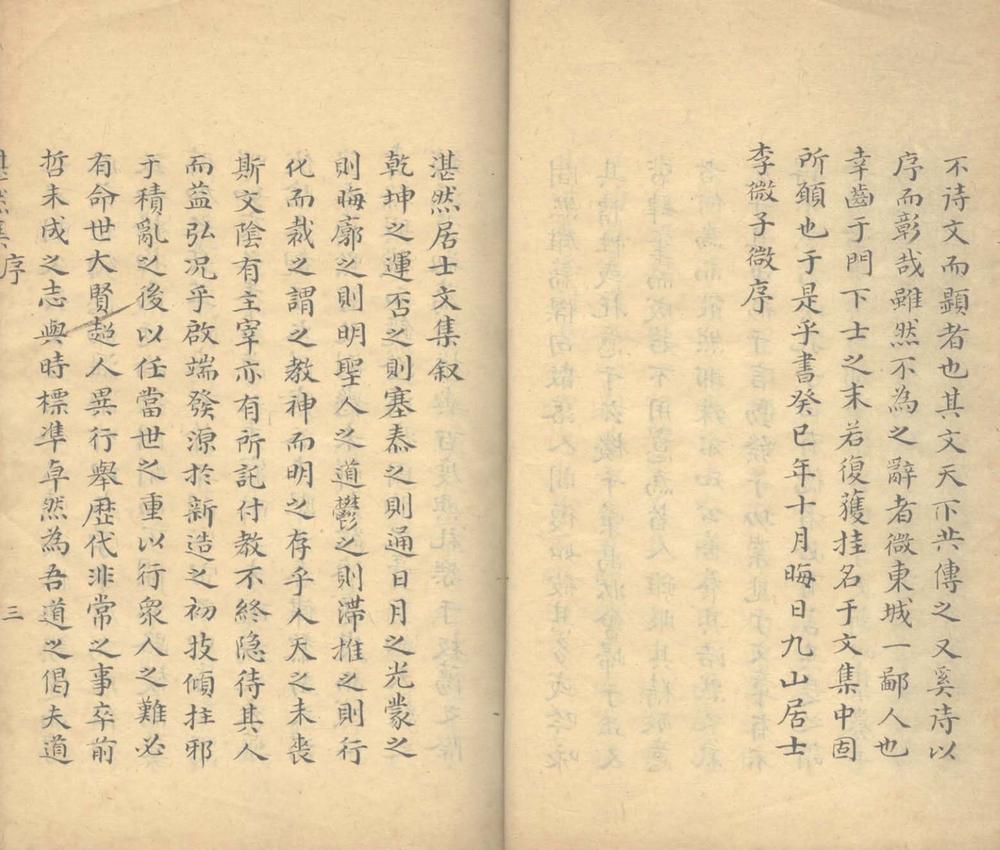 不诗文而顕者也其文天下共傳之又奚诗以
序而彰哉雖然不為之辭者微東城一鄙人也
幸齒于門下士之末若復獲挂名于文集中固
所願也于是乎書癸巳年十月晦日九山居士
李微子微序
湛然居士文集叙
乾坤之運否之則塞泰之則通日月之光蒙之
則晦廓之則明聖人之道鬱之則滯推之則行
化而裁之謂之教神而明之存乎人天之未喪
斯文陰有主宰亦有所託付教不終隐待其人
而益弘况乎啟端發源於新造之初技傾拄邪
于積亂之後以任當世之重以行衆人之難必
有命世大賢超人異行舉歴代非常之事卒前
哲未成之志與時標凖卓然為吾道之倡夫道
湛然集序
三